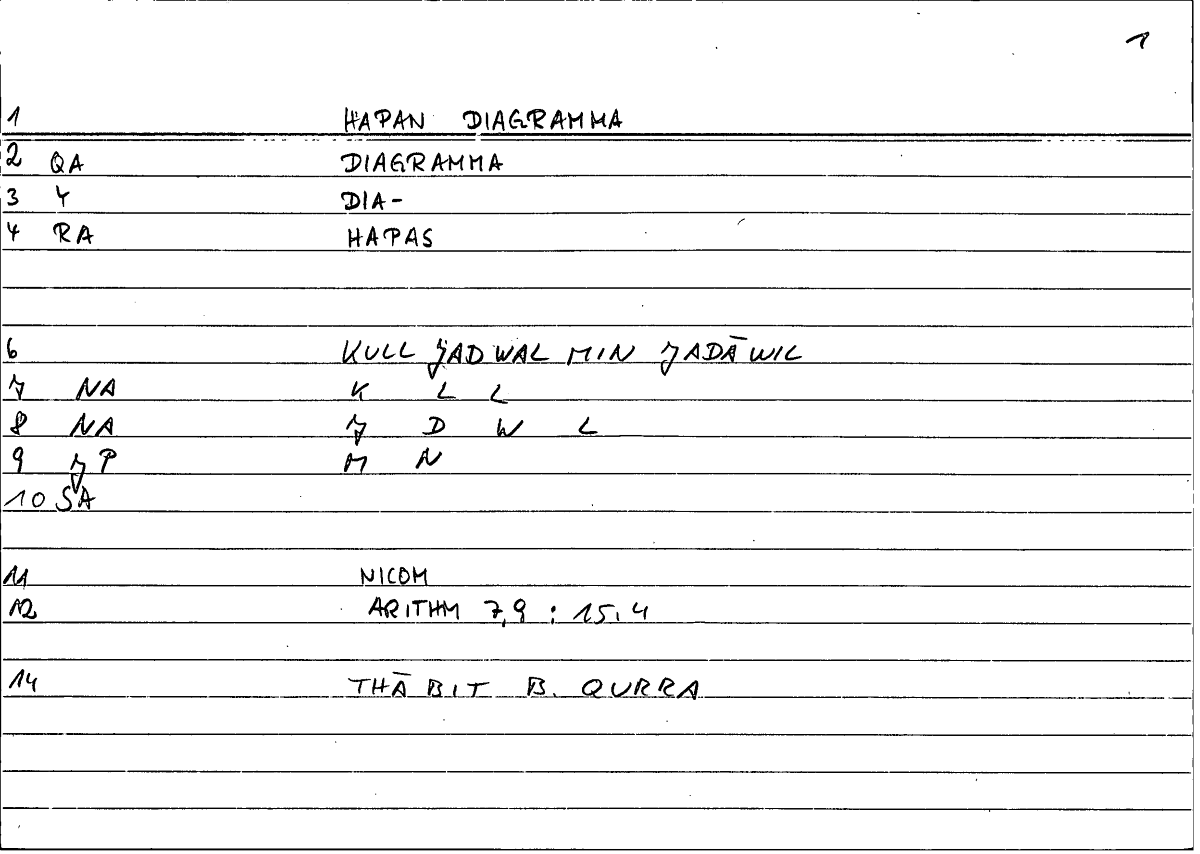 1
1 HAPAN DIAGRAMMA
2 QA DIAGRAMMA
3 Y DIA-
4 RA HAPAS
6 KULL ǦADWAL MIN JADĀWIL
7 NA K L L
8 NA J D W L
9 JP M N
10 SA
11 NICOM
12 ARITHM 7,9 : 15,4
14 THĀBIT B. QURRA